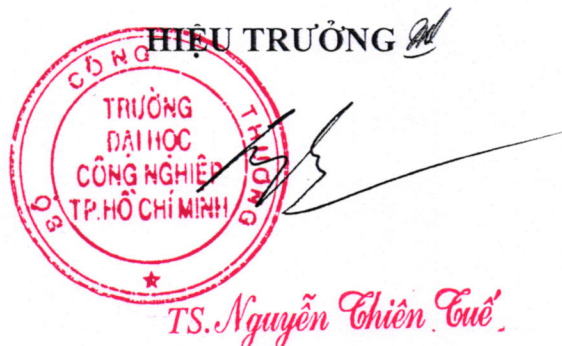 HIỆU TRƯỞNG
BỘ CÔNG THƯƠNG
TRƯỜNG
ĐẠI HỌC
CÔNG NGHIỆP
TP.HỒ CHÍ MINH
TS. Nguyễn Thiên Tuế